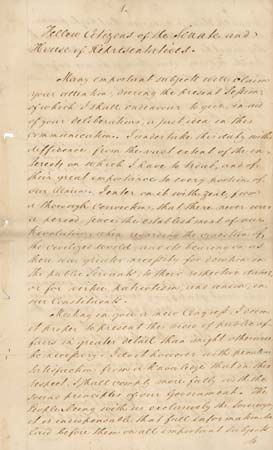 1.
Fellow Citizens of the Senate and
House of Representatives.
Many important subjects will claim
your attention, during the present Session,
of which I shall endeavour to give, in aid
of your deliberations, a just idea in this
communication. I undertake this duty with
diffidence from the vast extent of the in
terests on which I have to treat, and of
their great importance to every portion of
our Union. I enter on it with zeal, from
a thorough conviction, that there never was
a period since the establishment of our
Revolution, when regarding the condition of
the civilized world, and its bearing on us
there was greater necessity for devotion in
the public Servants, to their respective duties
or for virtue, patriotism, and union, in
our Constituents.
Meeting in you a new Congress, I deem
it proper to present this view of public af
fairs in greater detail than might otherwise
be necessary. I do it however with peculiar
satisfaction, from a knowledge that in this
respect, I shall comply more fully with the
sound principles of our Government. The
People being with us exclusively the Sovereign
it is indispensable that full information be
laid before them on all important subjects
to